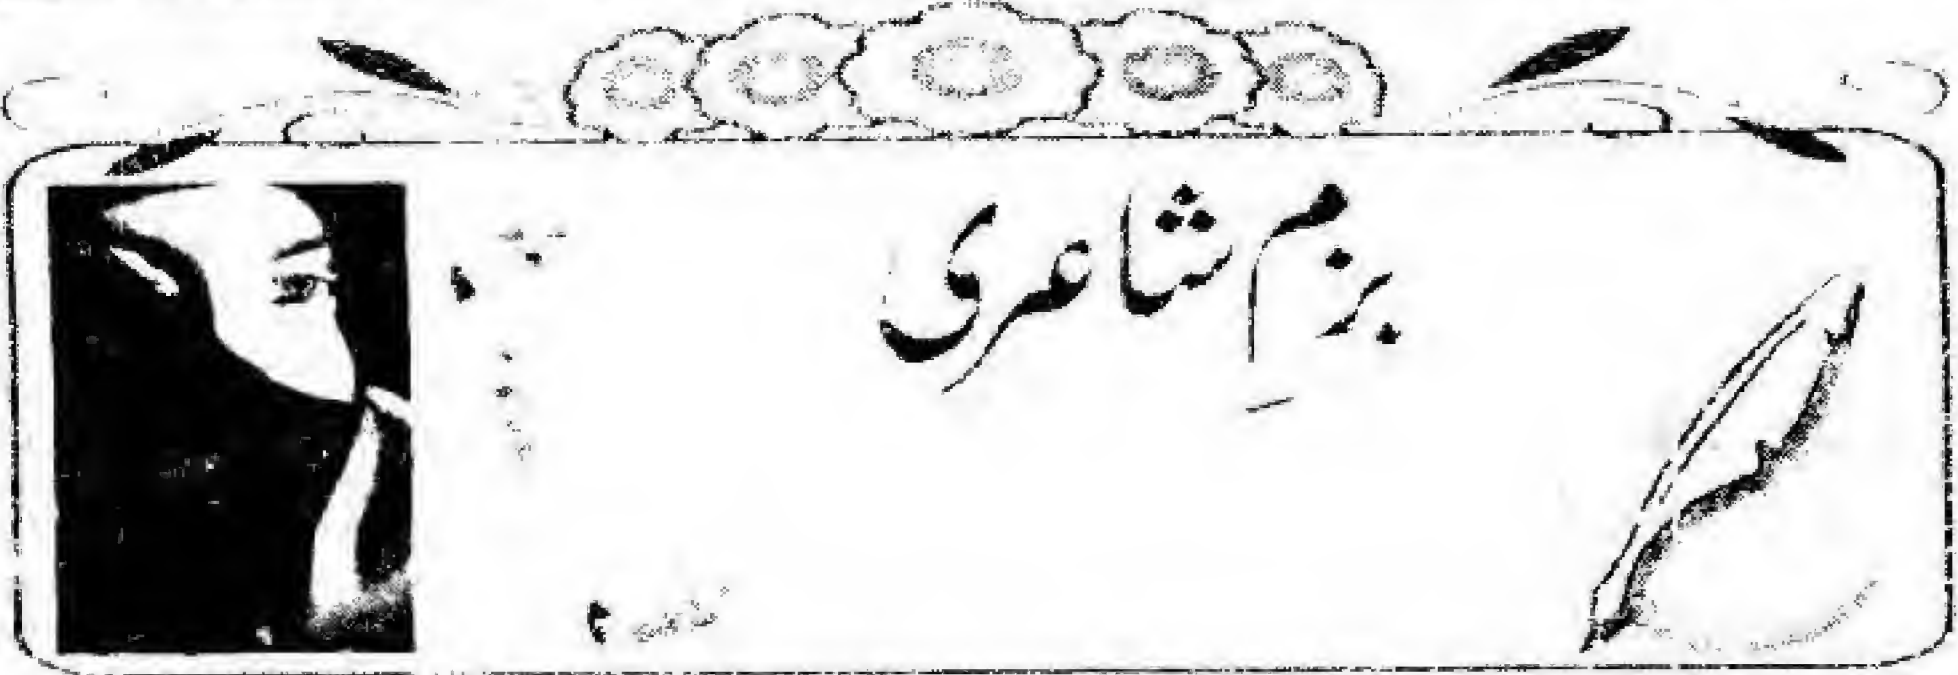 بزم شاعری